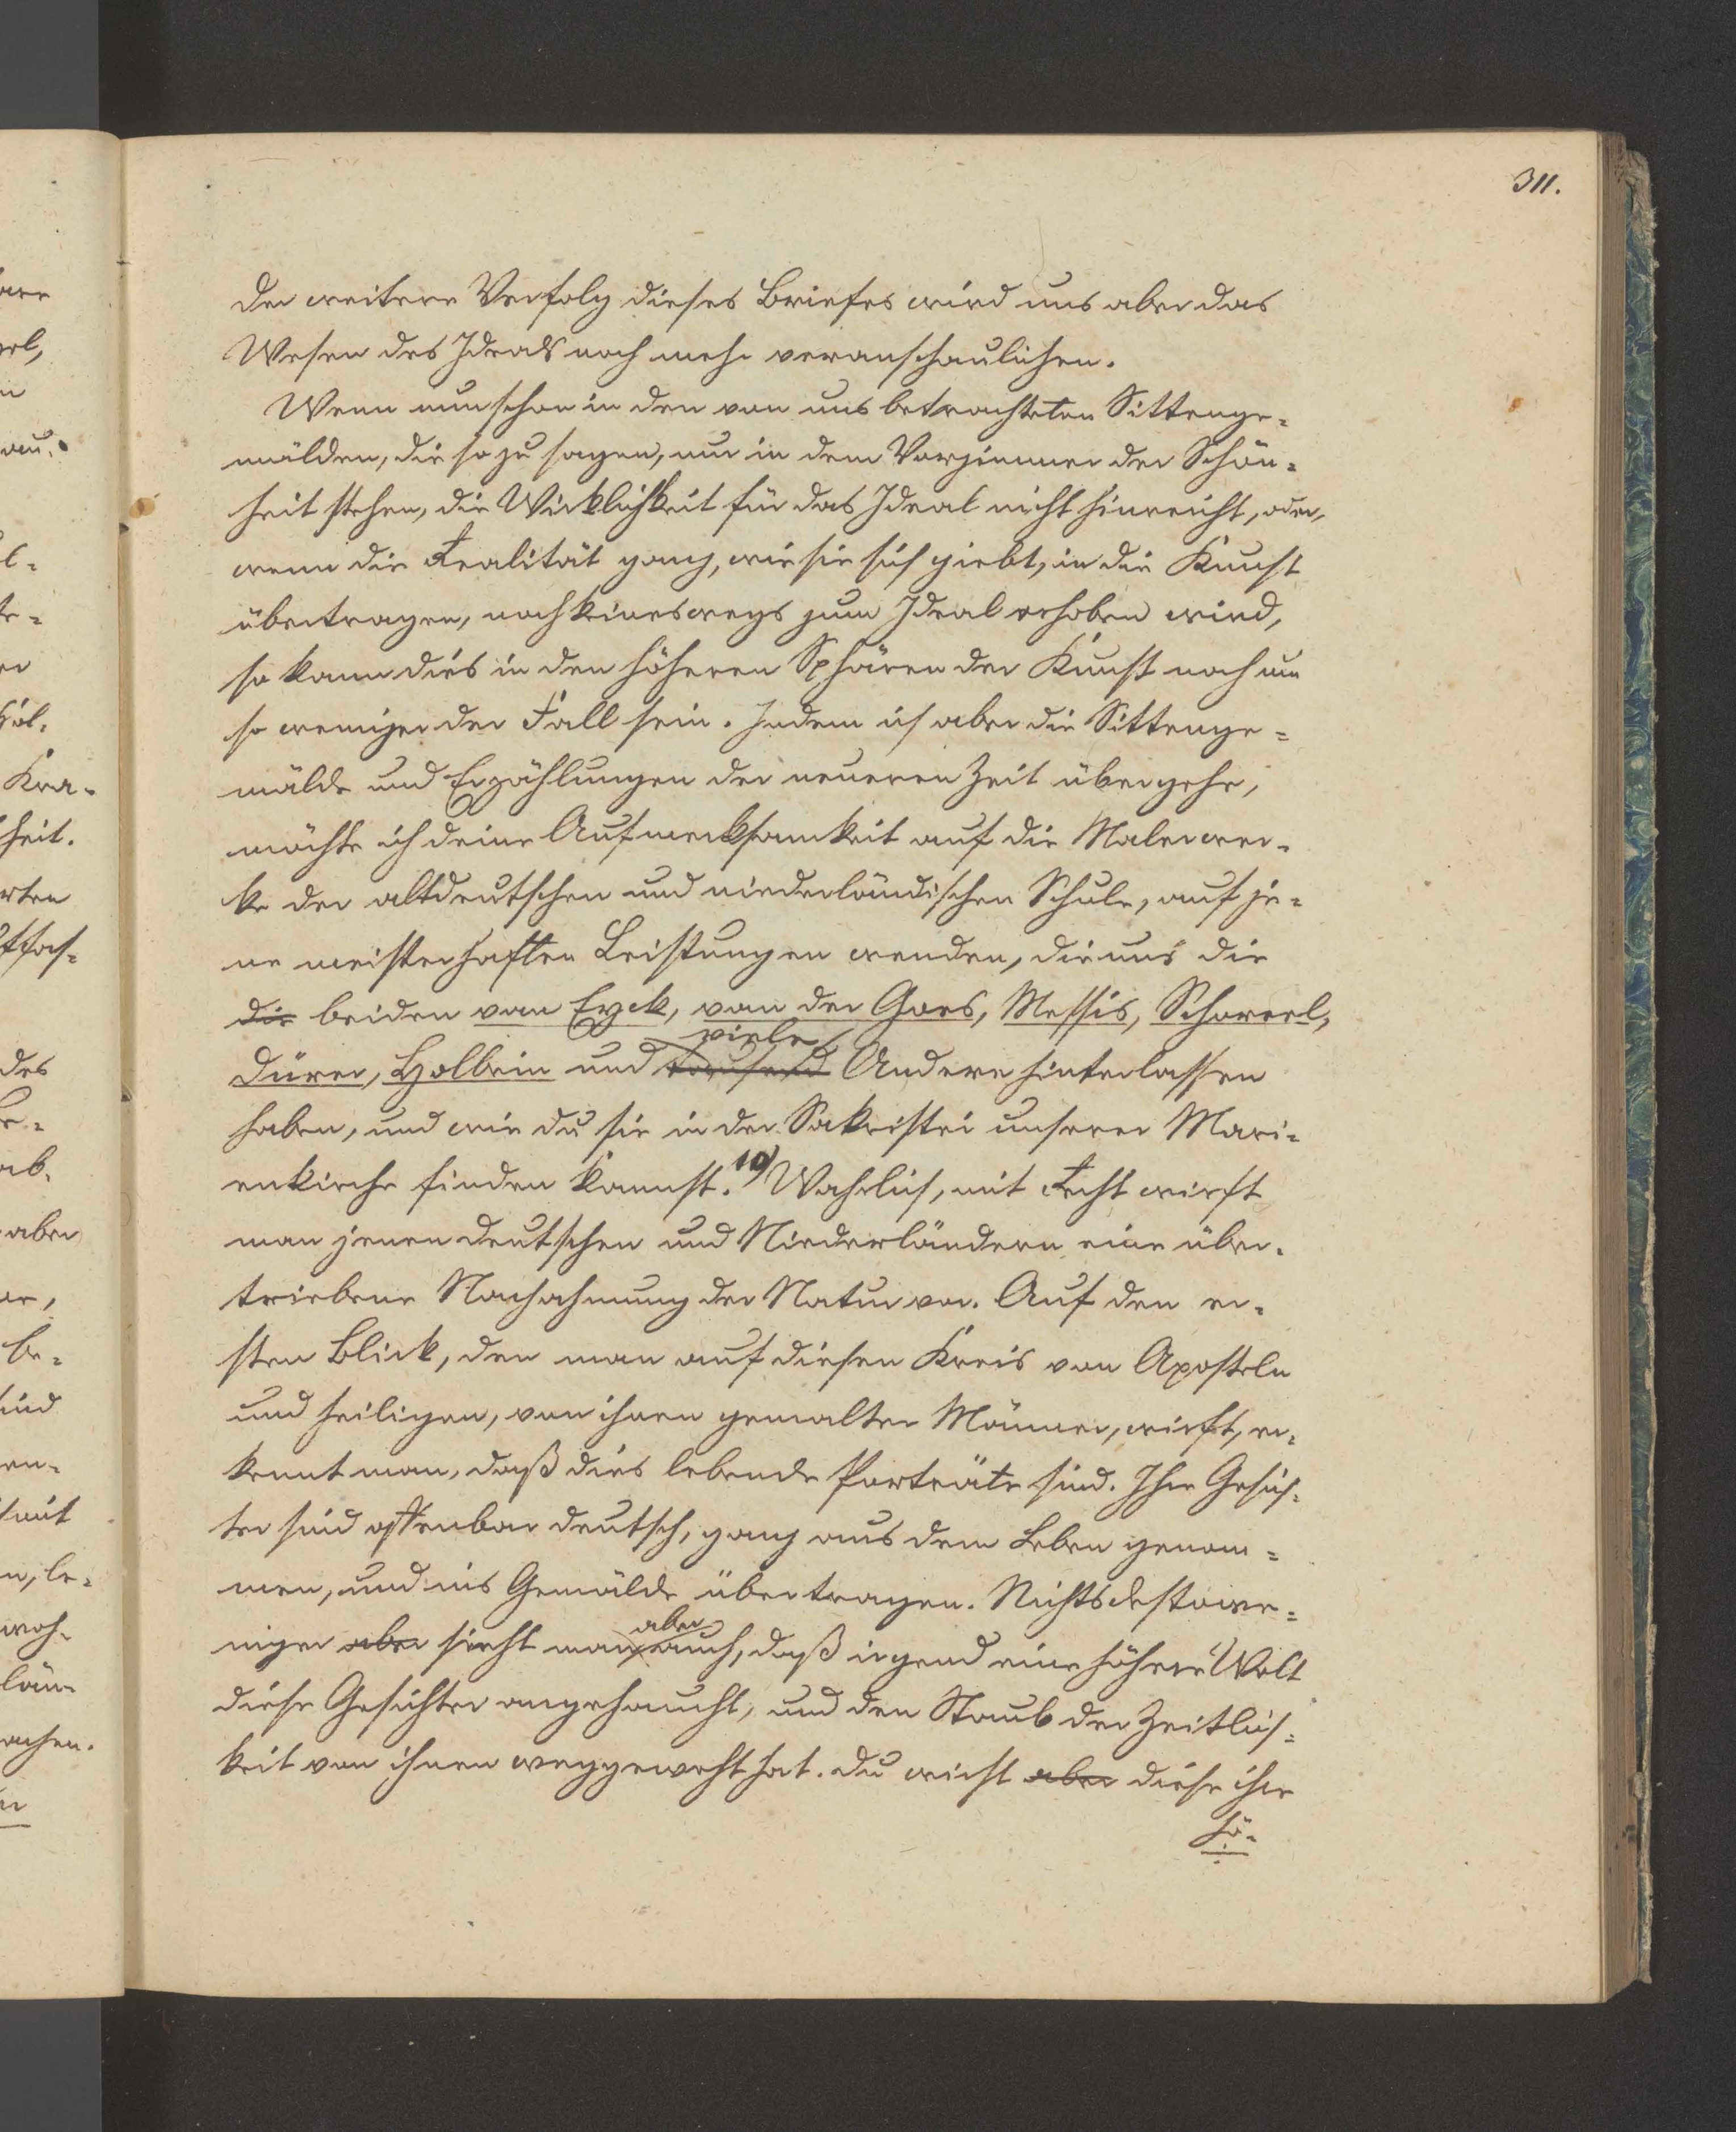 311.
Der weitere Verfolg dieses Briefes wird uns aber das
Wesen des Ideals noch mehr veranschaulichen.
Wenn nun schon in den von uns betrachteten Sittenge-
mälden, die so zu sagen, nur in dem Vorzimmer der Schön-
heit stehen, die Wirklichkeit für das Ideal nicht hinreicht, oder,
wenn die Realität ganz, wie sie sich giebt, in die Kunst
übertragen, noch keineswegs zum Ideal erhoben wird,
so kann dies in den höheren Sphären der Kunst noch um
so weniger der Fall sein. Indem ich aber die Sittenge-
mälde und Erzählungen der neueren Zeit übergehe,
möchte ich deine Aufmerksamkeit auf die Malerwer-
ke der altdeutschen und niederländischen Schule, auf je-
ne meisterhaften Leistungen wenden, die uns die
die beiden van Eyck, van der Goes, Messis, Schoreel,
viele
Dürer, Holbein und tausend Andere hinterlassen
haben, und wie du sie in der Sakristei unserer Mari-
enkirche finden kannst. 10) Wahrlich, mit Recht wirft
man jenen Deutschen und Niederländern eine über-
triebene Nachahmung der Natur vor. Auf den er-
sten Blick, den man auf diesen Kreis von Aposteln
und heiligen, von ihnen gemalten Männer, wirft, er-
kennt man, daß dies lebende Porträte sind. Ihre Gesich-
ter sind offenbar deutsch, ganz aus dem Leben genom-
men, und ins Gemälde übertragen. Nichtsdestowe-
aber
niger aber sieht man auch, daß irgend eine höhere Welt
diese Gesichter angehaucht, und den Staub der Zeitlich-
keit von ihnen weggeweht hat. Du wirst aber diese ihre
hö-